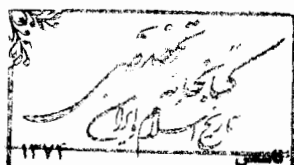 تخصصی
کتابخانه
تاریخ اسلام و ایران
۱۳۷۴